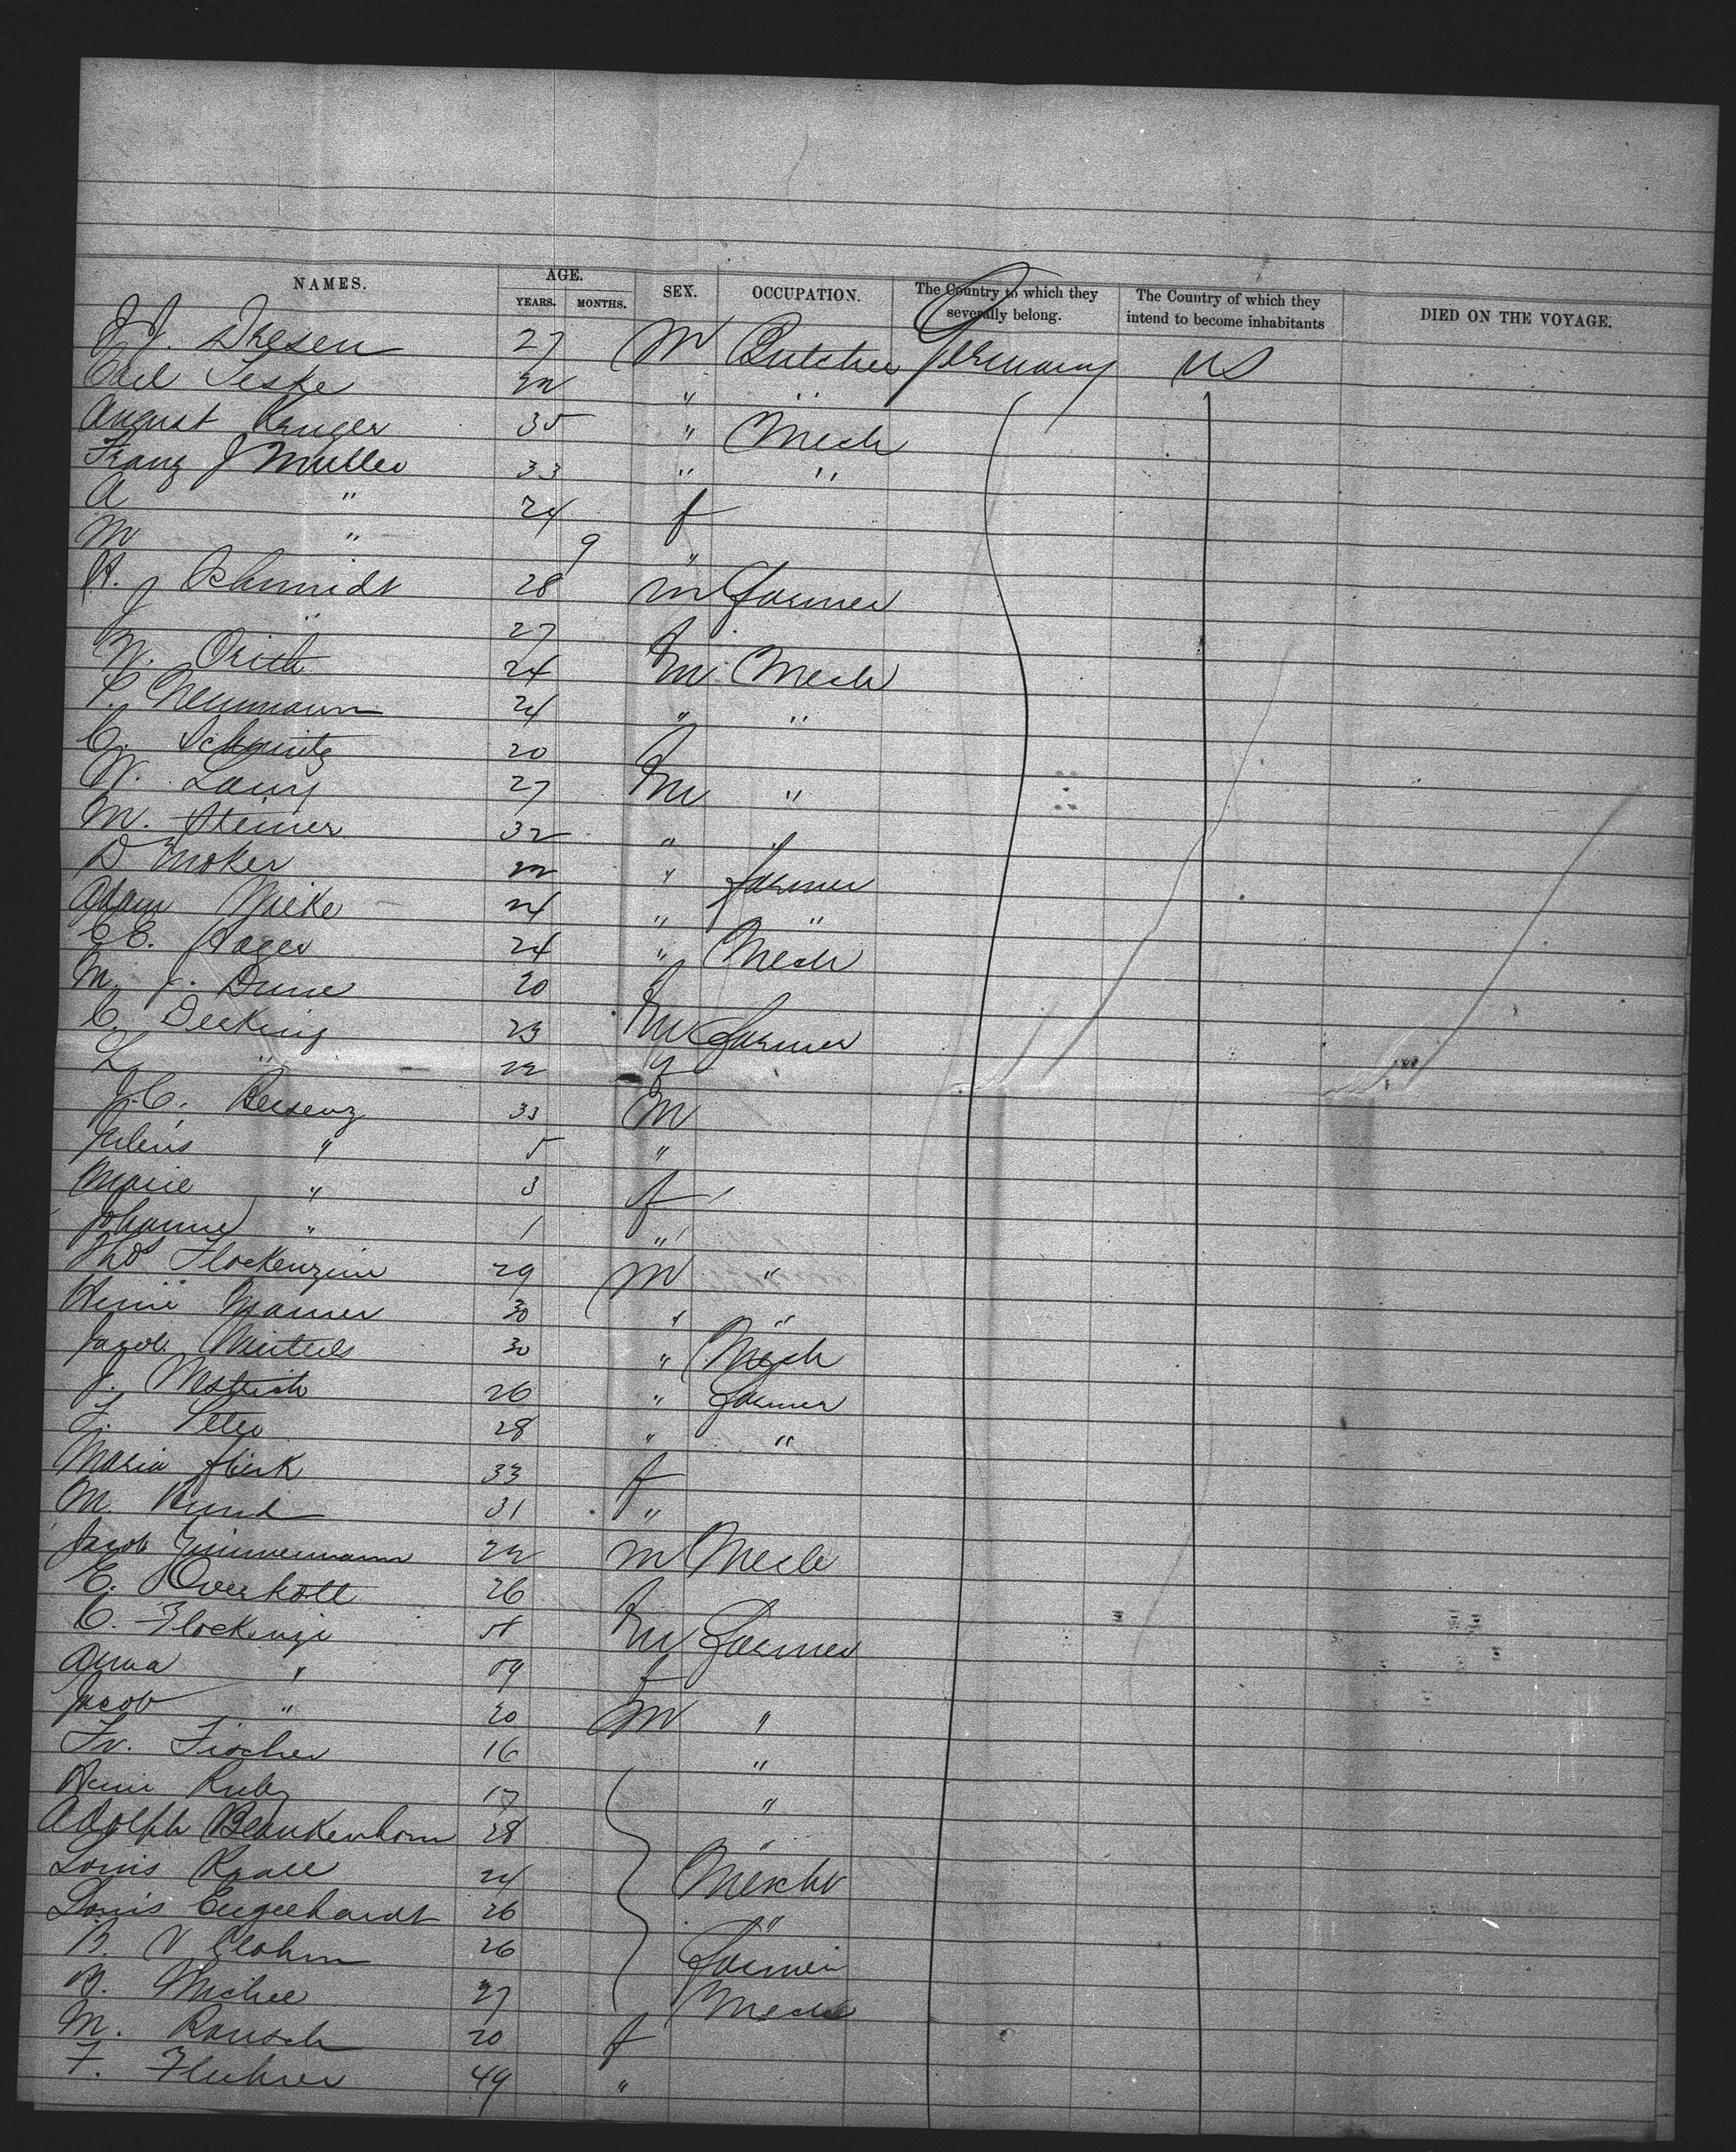 NAMES. AGE. YEARS. MONTHS. SEX. OCCUPATION. The Country to which they severally belong. The Country of which they intend to become inhabitants DIED ON THE VOYAGE.
J. Dresen 27 M Butcher Germany US
Carl Teske 22 " "
August Kruger 35 " Mech
Franz J Muller 33 " "
A " 24 f
M " 9 "
H. Schmidt 28 m farmer
J " 27
W. 24 m Mech
Neumann 24 " "
C. Schmitz 20 f
W. Lang 27 m "
M. Steiner 32 " "
D Moker 22 " farmer
Adam Mieke 24 " "
C E. Hager 24 " Mech
M. J. Dune 20 f
C. Decking 23 m farmer
L " 22 f
J. C. 33 M
Julius " 5 "
Marie " 3 f
Johanne " 1 "
Thos Flockenzine 29 M "
30 " "
Jacob 30 " Mech
J. Westrich 26 " farmer
28 " "
Maria 33 f
M. Kund 31 "
Jacob Zimmermann 22 m Mech
E. Overkott 26 f
C. Flockenzi 58 m farmer
Anna " 59 f
Jacob " 20 M "
Fr. Fischer 16 "
Ruby 17 "
Adolph Blankenhorn 28 "
Louis 24 Mech
Louis Engelhardt 26 "
B. V 26 farmer
27 Mech
M. Rausch 20 f
F. Fluhrer 49 "